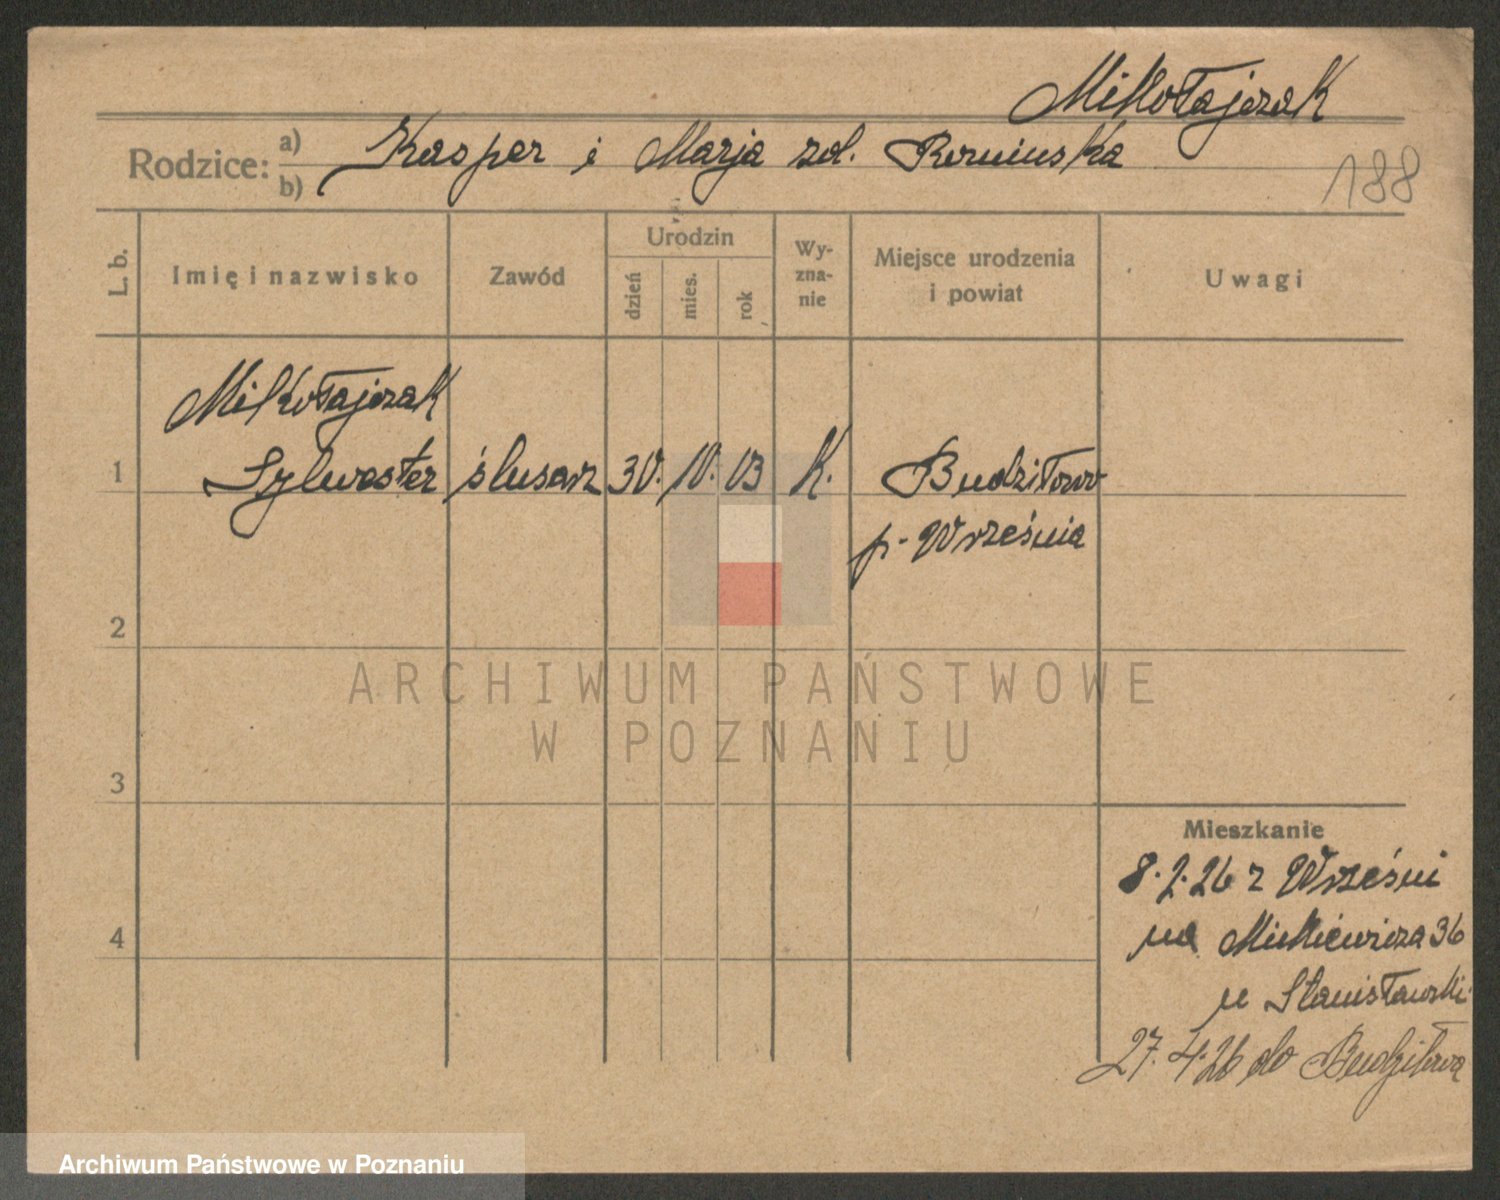 Mikołajczak
Rodzice: a) Kasper i Marja zd.
b)
188
L. b.
Imię i nazwisko
Zawód
Urodzin
dzień
mies.
rok
Wy-
zna-
nie
Miejsce urodzenia
i powiat
Uwagi
Mikołajczak
1 Sylwester ślusarz 30. 10. 03 K. Budziłowo
p. Września
2
ARCHIWUM PAŃSTWOWE
W POZNANIU
3
Mieszkanie
8.2.26 z Wrześni
4
na Mickiewicza 36
u Stanisławski
27.4.26 do Budziłowa
Archiwum Państwowe w Poznaniu